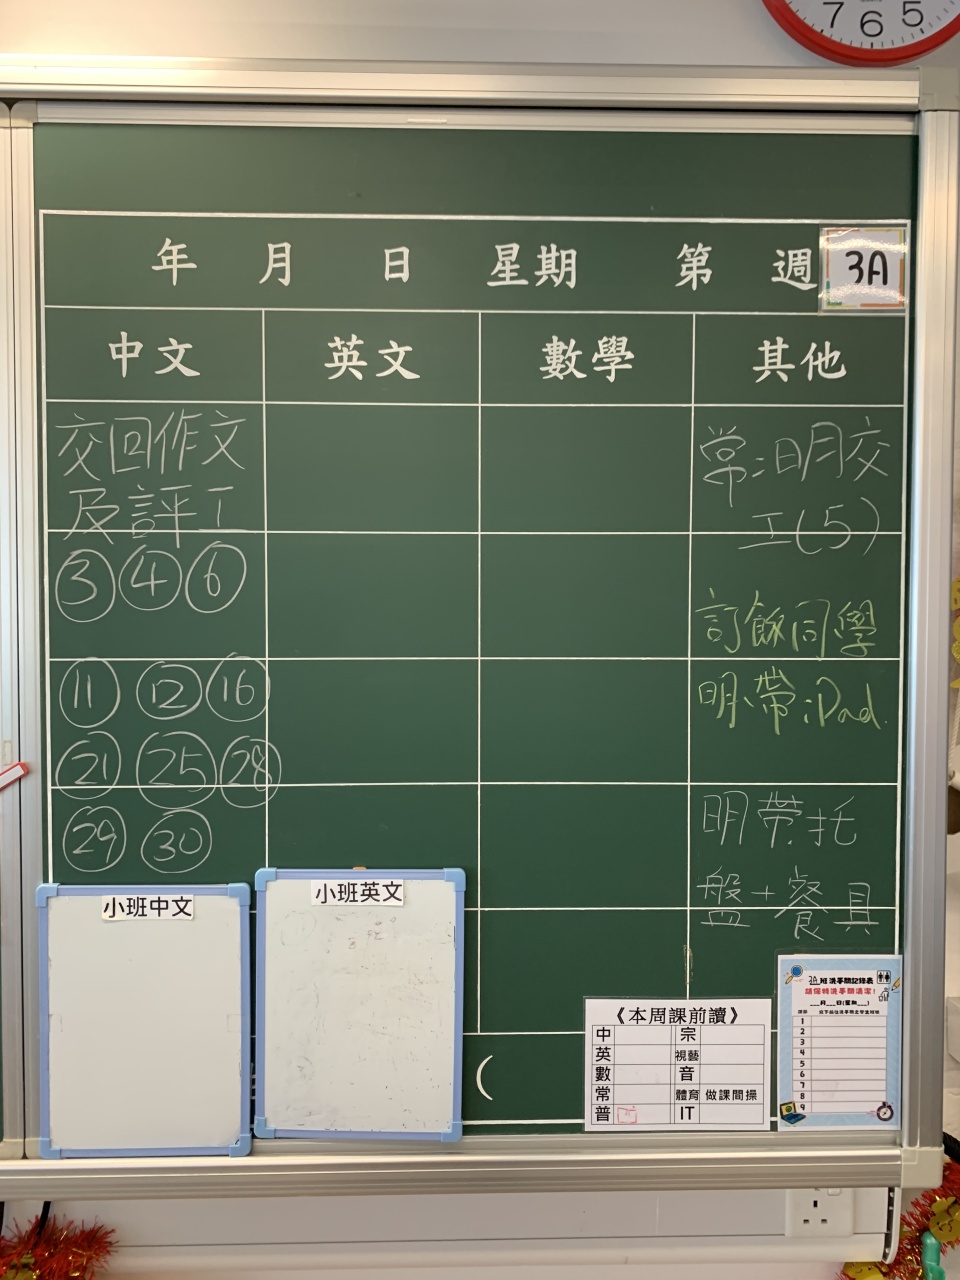 7 6 5
年 月 日 星期 第 週 3A
中文 英文 數學 其他
交回作文
及評工
③ ④ ⑥
⑪ ⑫ ⑯
㉑ ㉕ ㉘
㉙ ㉚
常:明交
工(5)
訂飯同學
明帶:iPad.
明帶托
盤+餐具
小班中文
小班英文
(
《本周課前讀》
中 宗
英 視藝
數 音
常 體育 做課間操
普 IT
3A班洗手間記錄表
請保持洗手間清潔!
___月___日(星期___)
1
2
3
4
5
6
7
8
9